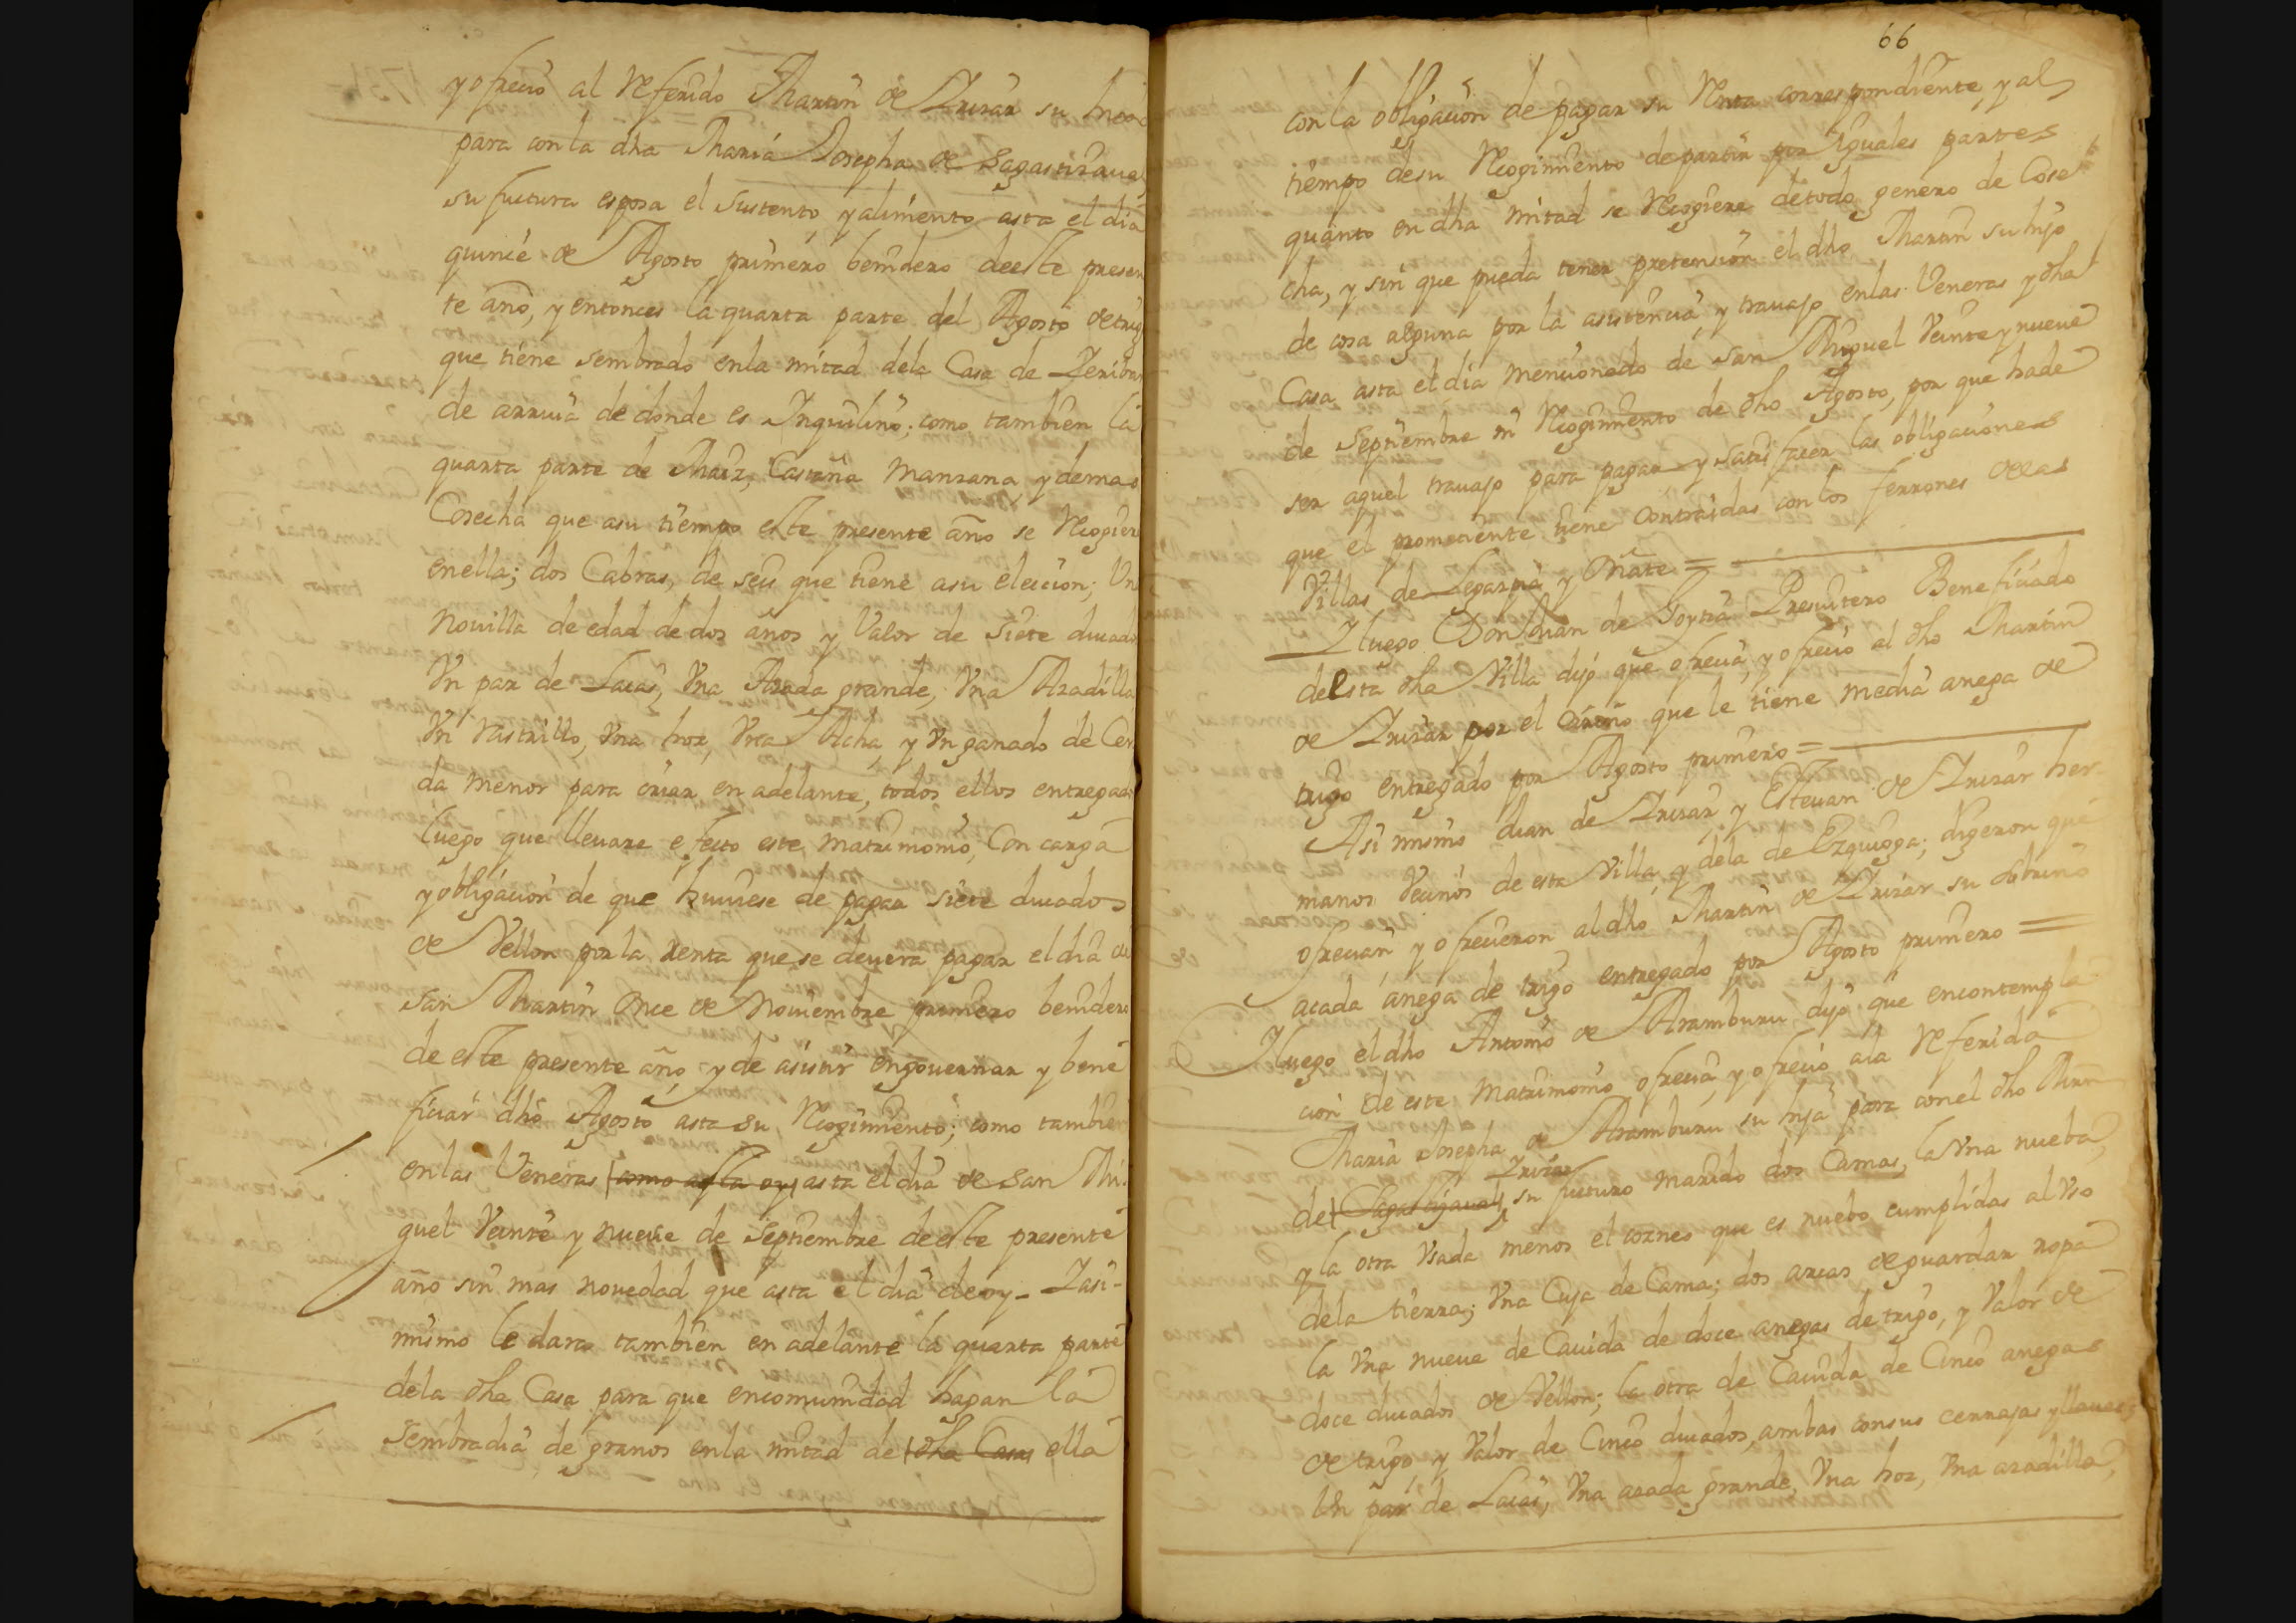 y ofrecio al Referido Martin de Yrizar su hixo
para con la dha Maria Josepha de Sagastizaual
su futura esposa el sustento, y alimento asta el dia
quince de Agosto primero benidero de este presen
te año, y entonces la quarta parte del Agosto de trig
que tiene sembrado en la mitad dela Casa de Zeribar
de arriua de donde es Inquilino; como tambien la
quarta parte de Maiz, Castaña Manzana, y demas
Cosecha que asu tiempo este presente año se Recogiere
enella; dos Cabras, de seis que tiene asu eleccion; Una
Nouilla de edad de dos años y Valor de Siete ducados
Un par de Laias, Una Azada grande, Una Azadilla
Un Rastrillo, Una hoz, Una Acha, y Un ganado de Cer
da menor para criar en adelante, todos ellos entregados
luego que lleuare efecto este matrimonio, Con carga
y obligacion de que huuiese de pagar siete ducados
de Vellon por la renta que se deuera pagar el dia de
San Martin Once de Nouiembre primero benidero
de este presente año, y de asistir en gouernar y bene
ficiar dho Agosto asta su Recogimiento; como tambien
en las Veneras como asta oy asta el dia de San Mi
guel Veinte y nueue de Septiembre de este presente
año sin mas novedad que asta el dia de oy - Y asi-
mismo le dara tambien en adelante la quarta parte
dela dha Casa para que encomunidad hagan la
Sembradia de granos enla mitad de dha Casa ella
66
con la obligacion de pagar su Renta correspondiente, y al
tiempo desu Recogimiento departir por Yguales partes
quanto en dha mitad se Recogiere detodo genero de Cose
cha, y sin que pueda tener pretension el dho Martin su hijo
de cosa alguna por la asistencia, y trauajo enlas Veneras y dha
Casa asta el dia mencionado de San Miguel Veinte y nueue
de Septiembre ni Recogimiento de dho Agosto, por que hade
ser aquel trauajo para pagar y satisfacer las obligaciones
que el promeciente tiene Contraidas con los ferrones delas
Villas de Legazpia y Oñate =
Y luego Don Juan de Goytia Presuitero Beneficiado
de esta dha Villa dijo que ofrecia, y ofrecio al dho Martin
de Yrizar por el Cariño que le tiene media anega de
trigo entregado por Agosto primero =
Asi mismo Juan de Yrizar, y Esteuan de Yrizar her
manos Vecinos de esta Villa, y dela de Ezquioga; digeron que
ofrecian y ofrecieron al dho Martin de Yrizar su sobrino
acada anega de trigo entregado por Agosto primero =
Y luego el dho Antonio de Aramburu dijo que encontempla
cion de este Matrimonio ofrecia, y ofrecio ala Referida
Maria Josepha de Aramburu su hija para conel dho Mrn
Yrizar
de Sagastizaual, su futuro marido dos Camas, la Una nueba,
y la otra Usada menos el cozneo que es nuebo cumplidas al Uso
dela tierra; Una Cuja de Cama; dos arcas de guardar ropa
la Una nueue de Cauida de doce anegas de trigo, y Valor de
doce ducados de Vellon; la otra de Cauida de Cinco anegas
de trigo y Valor de Cinco ducados, ambas consus cerrajas y llaues,
Un par de Laias, Una azada grande, Una hoz, Una azadilla,